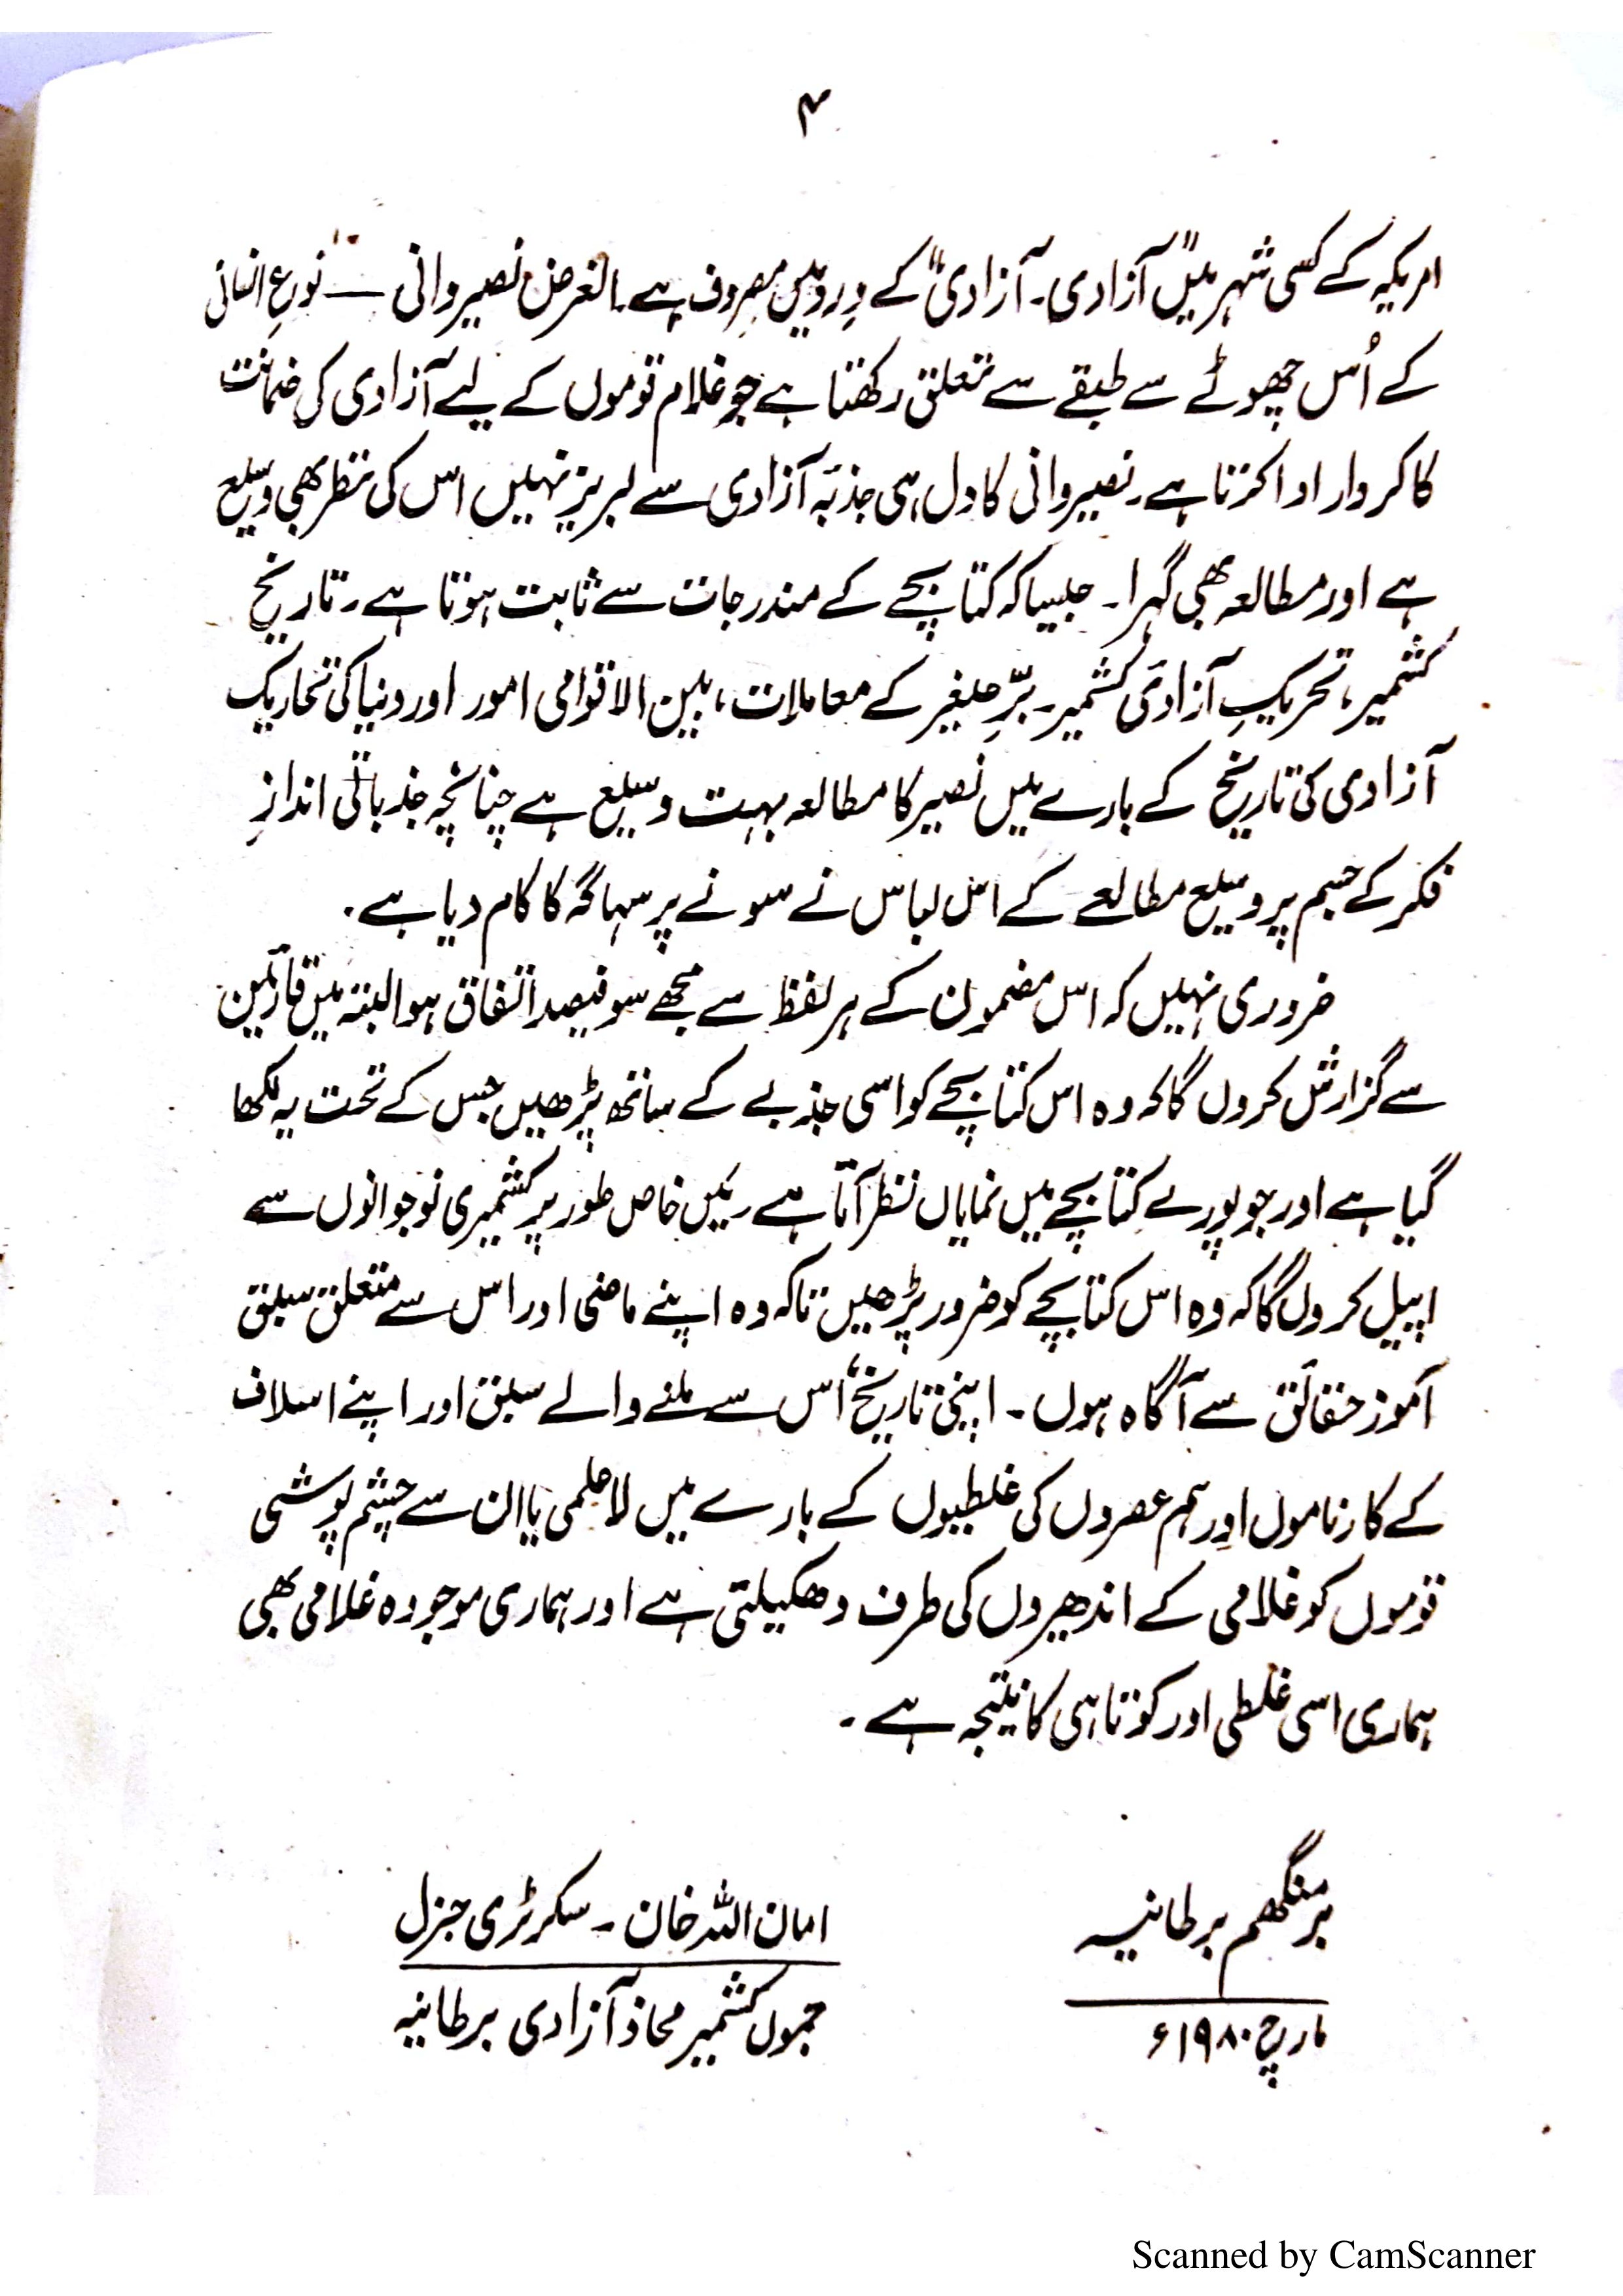 ۴
امریکہ کے کسی شہر میں "آزادی۔ آزادی" کے وِرد میں مصروف ہے۔ الغرض نصیر وانی — نوعِ انسانی
کے اُس چھوٹے سے طبقے سے تعلق رکھتا ہے جو غلام قوموں کے لیے آزادی کی ضمانت
کا کردار ادا کرتا ہے۔ نصیر وانی کا دل ہی جذبۂ آزادی سے لبریز نہیں اس کی نظر بھی وسیع
ہے اور مطالعہ بھی گہرا۔ جیسا کہ کتابچے کے مندرجات سے ثابت ہوتا ہے۔ تاریخِ
کشمیر، تحریکِ آزادیٔ کشمیر۔ برِّ صغیر کے معاملات، بین الاقوامی امور اور دنیا کی تحاریک
آزادی کی تاریخ کے بارے میں نصیر کا مطالعہ بہت وسیع ہے چنانچہ جذباتی اندازِ
فکر کے جسم پر وسیع مطالعے کے اس لباس نے سونے پر سہاگہ کا کام دیا ہے۔
ضروری نہیں کہ اس مضمون کے ہر لفظ سے مجھے سو فیصد اتفاق ہو البتہ میں قارئین
سے گزارش کروں گا کہ وہ اس کتابچے کو اسی جذبے کے ساتھ پڑھیں جس کے تحت یہ لکھا
گیا ہے اور جو پورے کتابچے میں نمایاں نظر آتا ہے۔ میں خاص طور پر کشمیری نوجوانوں سے
اپیل کروں گا کہ وہ اس کتابچے کو ضرور پڑھیں تاکہ وہ اپنے ماضی اور اس سے متعلق سبق
آموز حقائق سے آگاہ ہوں۔ اپنی تاریخ، اس سے ملنے والے سبق اور اپنے اسلاف
کے کارناموں اور ہم عصروں کی غلطیوں کے بارے میں لاعلمی یا ان سے چشم پوشی
قوموں کو غلامی کے اندھیروں کی طرف دھکیلتی ہے اور ہماری موجودہ غلامی بھی
ہماری اسی غلطی اور کوتاہی کا نتیجہ ہے۔
برمنگھم برطانیہ
مارچ ۱۹۸۰ء
امان اللہ خان۔ سکرٹری جنرل
جموں کشمیر محاذ آزادی برطانیہ
Scanned by CamScanner